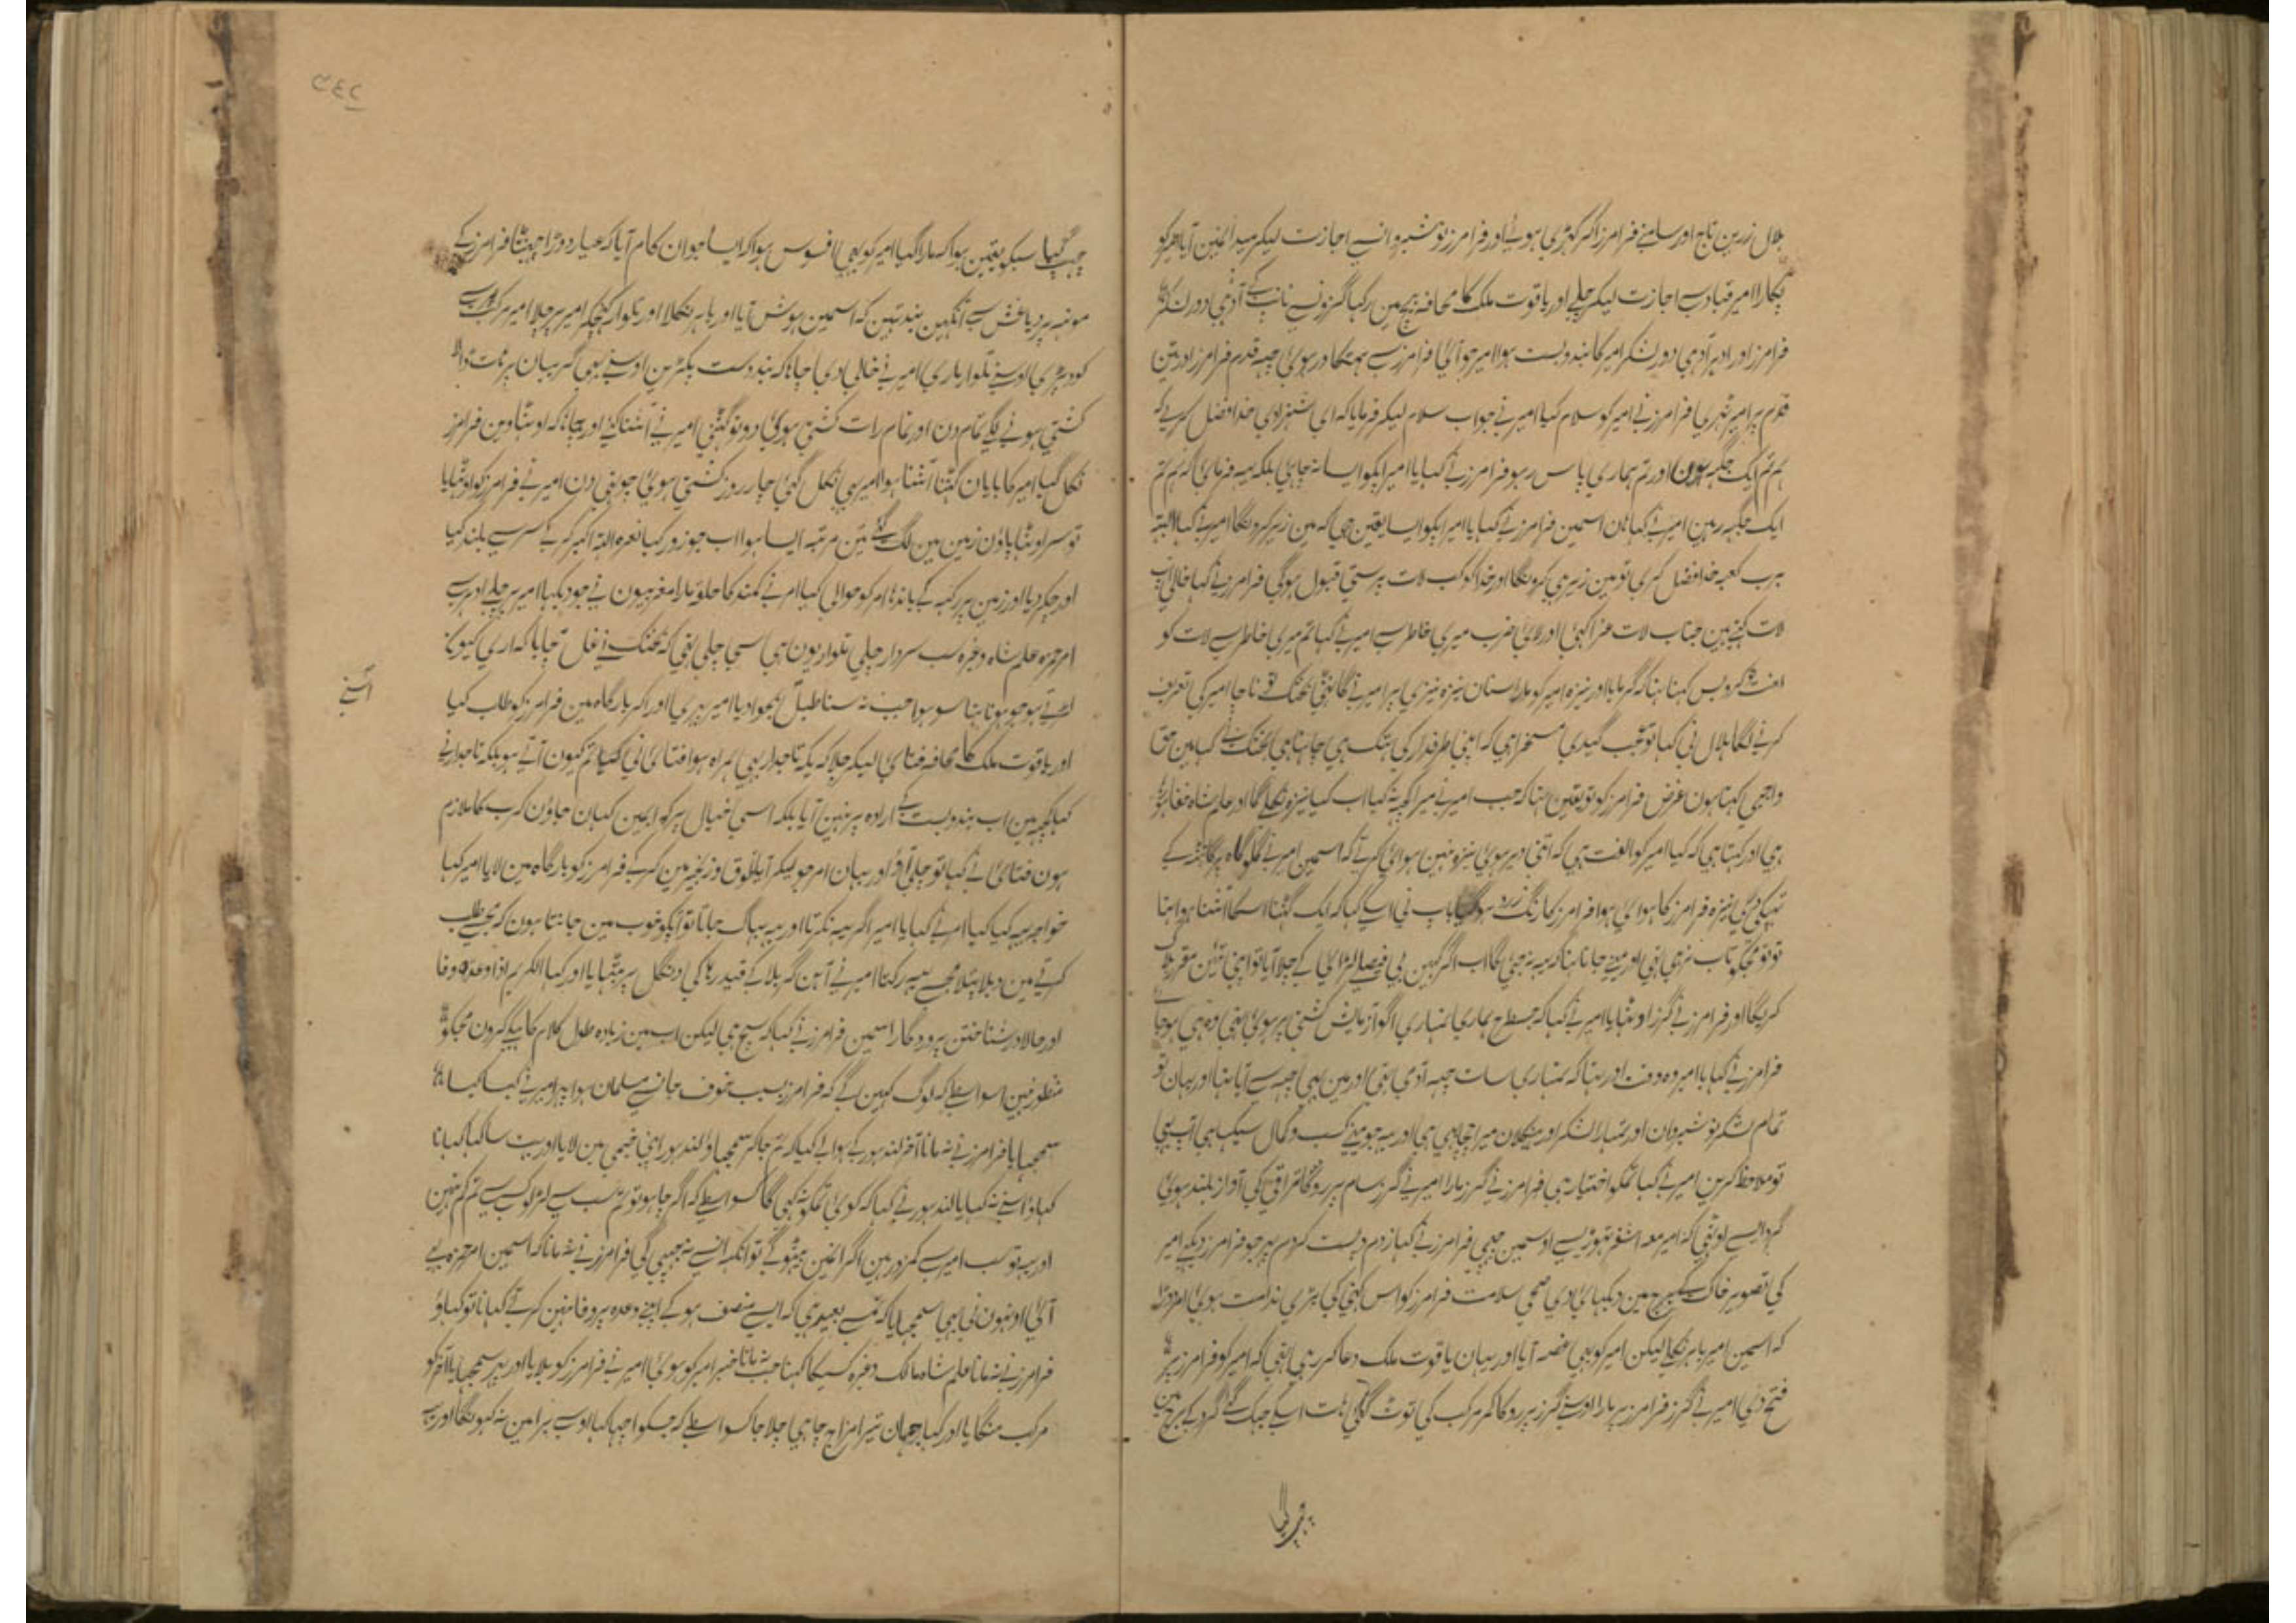 بلال زرین تاج اور سامنے فرامرز اکر کہڑی ہوئے اور فرامرز نوشیروانسے اجازت لیکر میدانمین آیا امیر کو
پکارا امیر قباد سے اجازت لیکر چلے اور یاقوت ملک کا محافہ بیچ مین رکہا گزونسے ناپ کے آدہی دور لشکر
فرامرز اور ادہر آدہی دور لشکر امیر کا بندوبست ہوا امیر جو آئی فرامرز سے ہمتگاور ہوئی چہہ قدم فرامرز اور تین
قدم پر امیر ٹہری فرامرز نے امیر کو سلام کیا امیر نے جواب سلام لیکر فرمایا کہ ای شہزادی خدا فضل کرے کہ
ہم تم ایک جگہہ ہون اور تم ہماری پاس رہو فرامرز نے کہا یا امیر اپکو ایسا نہ چاہئی بلکہ یہہ فرمائی کہ ہم تم
ایک جگہہ رہین امیر نے کہا ہان اسمین فرامرز نے کہا یا امیر اپکو ایسا یقین ہی کہ مین زیر کرونگا امیر نے کہا البتہ
برب کعبہ خدا فضل کری تو مین زیر ہی کرونگا اور خدا کو کب لات پرستی قبول ہوگی فرامرز نے کہا خالی اپ
لات کہتے ہین جناب لات عزا کہئی اور لائی ضرب میری خاطر سے امیر نے کہا تم میری خاطر سے لات کو
لعنت کرو بس کہنا تہا کہ گرمایا اور نیزہ امیر کو مارا سنان نیزہ نیزی پر امیر نے گانٹہی بختک نے ناچا امیر کی تعریف
کرنے لگا بلال نی کہا تو عجب گیدی مسخرا ہی کہ اپنی طرفدار کی ہتک ہی چاہتا ہی بختک نے کہا مین حق
واجبی کہتا ہون غرض فرامرز کو تو یقین تہا کہ جب امیر نے میرا کچہہ نہ کیا اب کیا نیزہ نکلے گا اور علم شاہ خفا ہوتا
ہی اور کہتا ہی کہ کیا امیر کو الفت ہی کہ اتنی دیر ہوئی نیزہ نہین ہوائی کرتے کہ اسمین امیر نے گلوگاہ پر گانٹہہ کے
تہپکی دی نیزہ فرامرز کا ہوائی ہوا فرامرز کا رنگ زرد ہو گیا باپ نی اسے کہا کہ ایک گہٹنا اسکا آشنا ہوا تہا
تو تو مجکو تاب نرہی تہی اور مینے جانا تہا کہ یہہ نہ جئی گا اب اگر کہین بی فیصلے لڑائی کے چلا آیا تو اپنی تئین مقرر ہلاک
کریگا اور فرامرز نے گرز اوٹہایا امیر نے کہا کہ جسطرح ہماری تمہاری اگو آزمایش کشتی پر ہوئی تہی وہ ہی ہو جائے
فرامرز نے کہا یا امیر وہ وقت اور تہا کہ تمہاری سات چہہ آدمی تہی اور مین بہی چہہ سے آیا تہا اور یہان تو
تمام لشکر نوشیروان اور تمہارا لشکر اور سنگلان میرا چچا ہی ہی اور یہہ جو مینے کسب و کمال سیکہا ہی اپ بہی
تو ملاحظہ کرین امیر نے کہا تمکو اختیار ہی فرامرز نے گرز مارا امیر نے گرز سام پر روکا تراق کی آواز بلند ہوئی
گرد ایسے اوٹہی کہ امیر معہ اشقر تہوڑیسے اوسمین چہپی فرامرز نے کہا زدم و پست کردم پہر جو فرامرز دیکہے امیر
کی تصویر خاک کے بیچ مین دیکہائی دی صحی سلامت فرامرز کو اس کہنی کی بڑی ندامت ہوئی امر دوڑا
کہ اسمین امیر باہر نکلے لیکن امیر کو بہی غصہ آیا اور یہان یاقوت ملک دعا کر رہی تہی کہ امیر کو فرامرز پر
فتح دی امیر نے گرز فرامرز پر مارا اوسنے گرز پر روکا کمر مرکب کی ٹوٹ گئی ہات اسکے جہک گئے گرد کے بیچ مین
چہپ گیا
چہپ گیا سبکو یقین ہوا کہ مارا گیا امیر کو بہی افسوس ہوا کہ ایسا جوان کام آیا کہ عیار دوڑا چہینٹا فرامرز کے
مونہہ پر دیا غش سے آنکہین بند تہین کہ اسمین ہوش آیا اور باہر نکلا اور تلوار کہینچکر امیر پر چلا امیر مرکب پر سے
کود پڑی اوسنے تلوار ماری امیر نے خالی دی چاہا کہ بند دست پکڑین اوسنے بہی گریبان پر ہات ڈالا
کشتی ہونے لگی تمام دن اور تمام رات کشتی ہوئی دونو گہٹنی امیر نے آشنا کئے اور چاہا کہ اوٹہاوین فرامرز
نکل گیا امیر کا بایان گہٹنا آشنا ہوا امیر بہی نکل گئی چار روز کشتی ہوئی چوتہی دن امیر نے فرامرز کو اوٹہایا
تو سر اوٹہا پاؤن زمین مین لگ گئے تین مرتبہ ایسا ہوا اب جو زور کیا نعرہ اللہ اکبر کر کے سر سے بلند کیا
اور چکر دیا اور زمین پر رکہہ کے باندہا امر کو حوالی کیا امر نے کمند کا حلقہ مارا مغربیون نے جو دیکہا امیر پر چلے ادہر سے
امر حمزہ علم شاہ وغیرہ سب سردار چلی تلوار یون ہی سی چلی تہی کہ بختک نے غل مچایا کہ اری کیون
لڑتے ہو جو ہونا تہا سو ہوا جب نہ سنا طبل بجوادیا امیر پہری اور اکر بارگاہ مین فرامرز کو طلب کیا
اسنے
اور یاقوت ملک کا محافہ فتنائی لیکر چلا کہ یکہ تاجدار بہی ہمراہ ہوا فتنائی نی کہا تم کیون آتے ہو یکہ تاجدار نے
کہا کچہہ مین اب بندوبست کے ارادہ پر نہین آیا بلکہ اسی خیال پر کہ ابمین کہان جاؤن گرب کا ملازم
ہون فتنائی نے کہا تو چلے آؤ اور یہان امر جو لیکر آیا طوق و زنجیر مین کر کے فرامرز کو بارگاہ مین لایا امیر کہا
خواجہ یہہ کیا کیا امر نے کہا یا امیر اگر یہہ نکرتا اور یہہ بہاگ جاتا تو اپکو خوب مین جانتا ہون کہ مجہے طلب
کرتے مین دبلا پتلا مجہسے پہیر رکہنا امیر نے آہن گر بلا کے قید رہا کی دنگل پر بٹہایا اور کہا الکریم اذا وعدہ وفا
اور حالا در شناختن پروردگار اسمین فرامرز نے کہا کہ سچ ہی لیکن اب مین زیادہ طول کلام کاہیکو کرون مجکو
منظور نہین اسواسطے کہ لوگ کہین گے کہ فرامرز بسبب خوف جانسے مسلمان ہوا پہر امیر نے کہا کیا
سمجہایا فرامرز نے نہ مانا آخر لندہور کے حوالے کیا کہ تم جا کر سمجہاؤ لندہور اپنی خیمی مین لایا اور بہت سا کہا کہانا
کہاؤ اسنے نہ کہایا لندہور نے کہا کہ کوئی تمکو نہ کہی گا کسواسطے کہ اگر چاہو تو تم سب سے لڑلو کسی سے تم کم نہین
اور یہہ تو سب امیر سے کمزور ہین اگر انمین بیٹہو گے تو انکہہ انسے نہ چہپی گی فرامرز نے نہ مانا کہ اسمین امر حمزہ بہی
آئی اونہون نی بہی سمجہایا کہ تمسے بعید ہی کہ ایسے منصف ہو کے اپنے وعدہ پر وفا نہین کرتے کہانا تو کہاؤ
فرامرز نے نہ مانا علم شاہ مالک وغیرہ کسیکا کہنا جب نہ مانا خبر امیر کو ہوئی امیر نے فرامرز کو بلایا اور پہر سمجہایا آخر کو
مرکب منگایا اور کہا جہان تیرا مزاج چاہی چلا جا کسواسطے کہ جسکو اچہا کہا اوسے برا مین نہ کہونگا اور یہہ